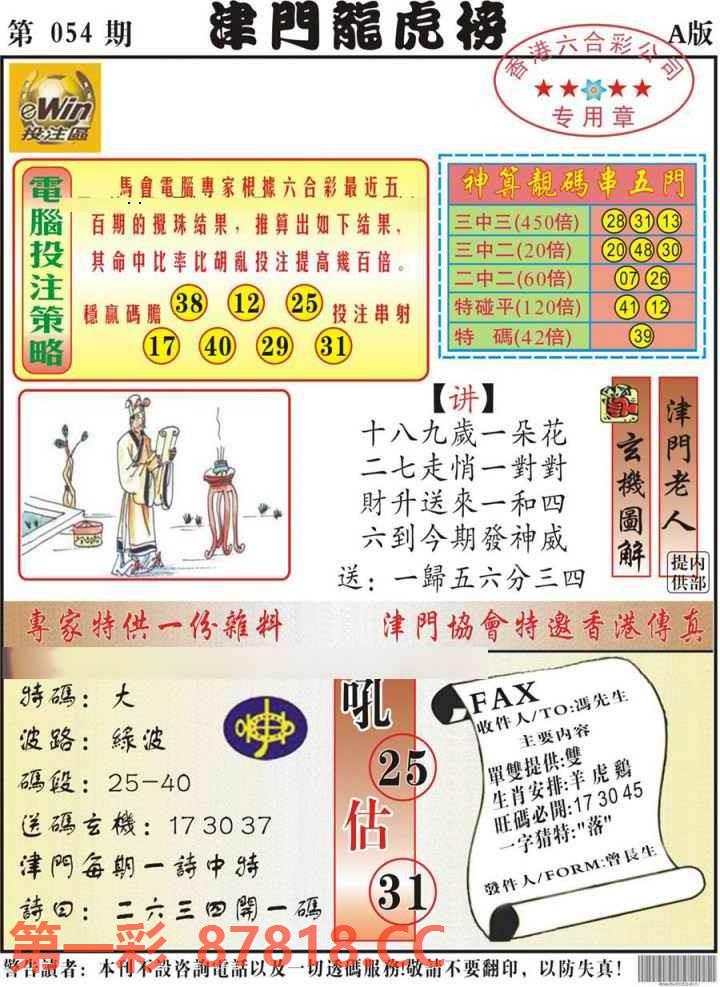 第 054 期
津門龍虎榜
A版
香港六合彩公司
★★★★
专用章
eWin
投注區
電腦投注策略
馬會電腦專家根據六合彩最近五
百期的攪珠结果，推算出如下结果，
其命中比率比胡亂投注提高幾百倍。
穩贏碼膽 38 12 25 投注串射
17 40 29 31
神算靚碼串五門
三中三(450倍) 28 31 13
三中二(20倍) 20 48 30
二中二(60倍) 07 26
特碰平(120倍) 41 12
特 碼(42倍) 39
【讲】
十八九歲一朵花
二七走悄一對對
財升送來一和四
六到今期發神威
送：一歸五六分三四
玄機圖解
津門老人
内部提供
專家特供一份雜料
津門協會特邀香港傳真
特碼：大
波路：綠波
碼段：25-40
送碼玄機：17 30 37
津門每期一詩中特
詩曰：二六三四開一碼
吼
25
估
31
FAX
收件人/TO:馮先生
主要内容
單雙提供:雙
生肖安排:羊 虎 鷄
旺碼必開:17 30 45
一字猜特:"落"
發件人/FORM:曾長生
第一彩 87818.CC
警告讀者：本刊不設咨詢電話以及一切透碼服務!敬請不要翻印，以防失真!